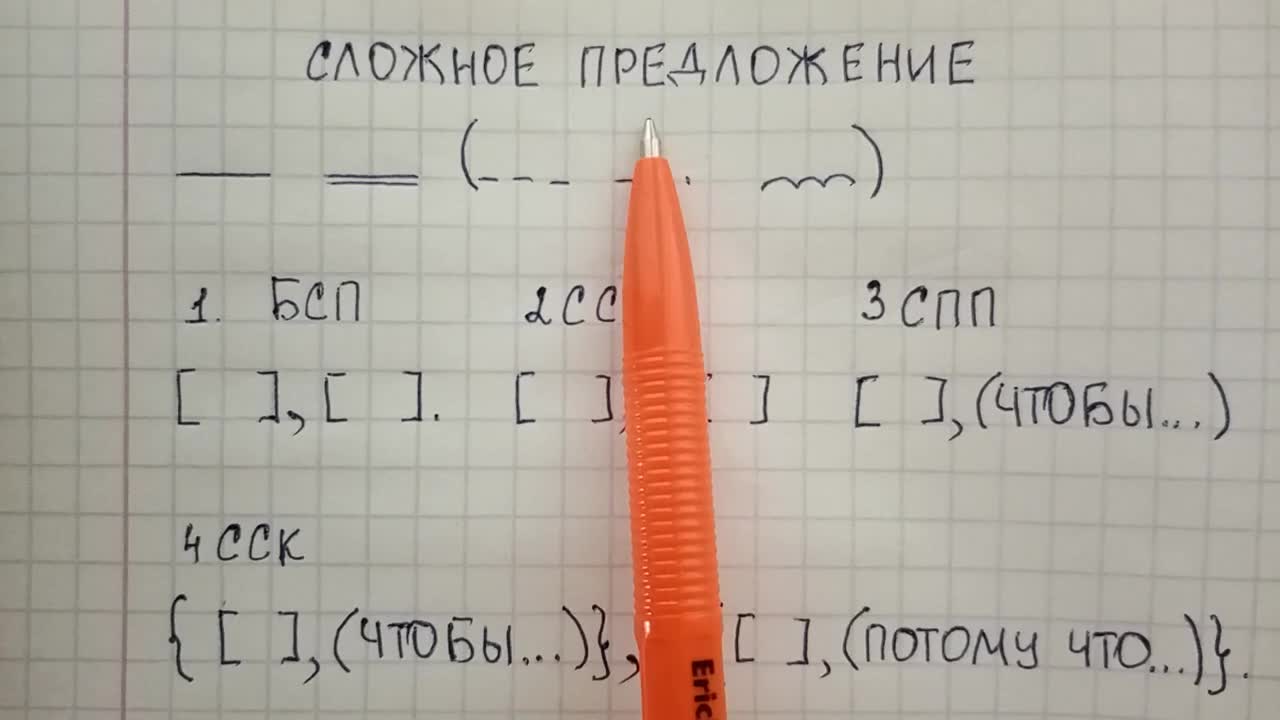 СЛОЖНОЕ ПРЕДЛОЖЕНИЕ
1. БСП 2 СС 3 СПП
[ ], [ ]. [ ], [ ] [ ], (ЧТОБЫ...)
4 ССК
{ [ ], (ЧТОБЫ...)}, [ ], (ПОТОМУ ЧТО...)}.
Eric